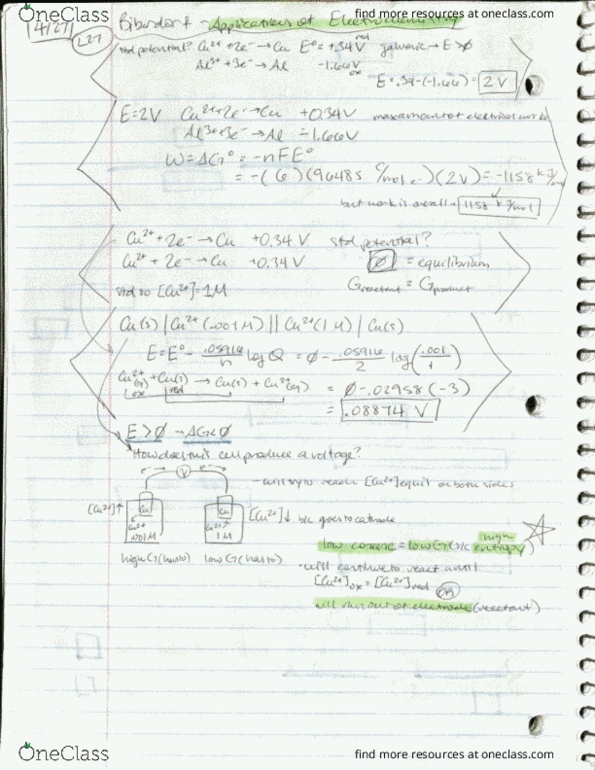 OneClass
find more resources at oneclass.com
find more resources at oneclass.com
4/27
L27
Biberdorf - Applications of Electrochemistry
std potential? Cu²⁺ + 2e⁻ → Cu E° = +.34V red galvanic → E > ∅
Al³⁺ + 3e⁻ → Al -1.66V ox
E = .34 - (-1.66) = 2 V
E = 2V Cu²⁺ + 2e⁻ → Cu +0.34V max amount of electrical work
Al³⁺ + 3e⁻ → Al -1.66V
W = ΔG° = -nFE°
= -(6)(96485 C/mol e⁻)(2V) = -1158 kJ/mol
but work is overall → 1158 kJ/mol
Cu²⁺ + 2e⁻ → Cu +0.34V std potential?
Cu²⁺ + 2e⁻ → Cu +0.34V ∅ = equilibrium
std to [Cu²⁺] = 1M Greactant = Gproduct
Cu(s) | Cu²⁺(.001M) || Cu²⁺(1M) | Cu(s)
E = E° - .05916/n log Q = ∅ - .05916/2 log(.001/1)
Cu²⁺(aq) + Cu(s) → Cu(s) + Cu²⁺(aq) = ∅ - .02958(-3)
ox red
= .08874 V
E > ∅ → ΔG < ∅
How does this cell produce a voltage?
e⁻ → V e⁻ →
- will try to reach [Cu²⁺] equil on both sides
[Cu²⁺]↑ Cu Cu [Cu²⁺]↓ b/c goes to cathode
Cu²⁺ .001M Cu²⁺ 1M
low concentr = low G (b/c high entropy)
high G (has to) low G (has to)
- will continue to react until
[Cu²⁺]ox = [Cu²⁺]red OR
will run out of electrode (reactant)
OneClass
find more resources at oneclass.com
find more resources at oneclass.com